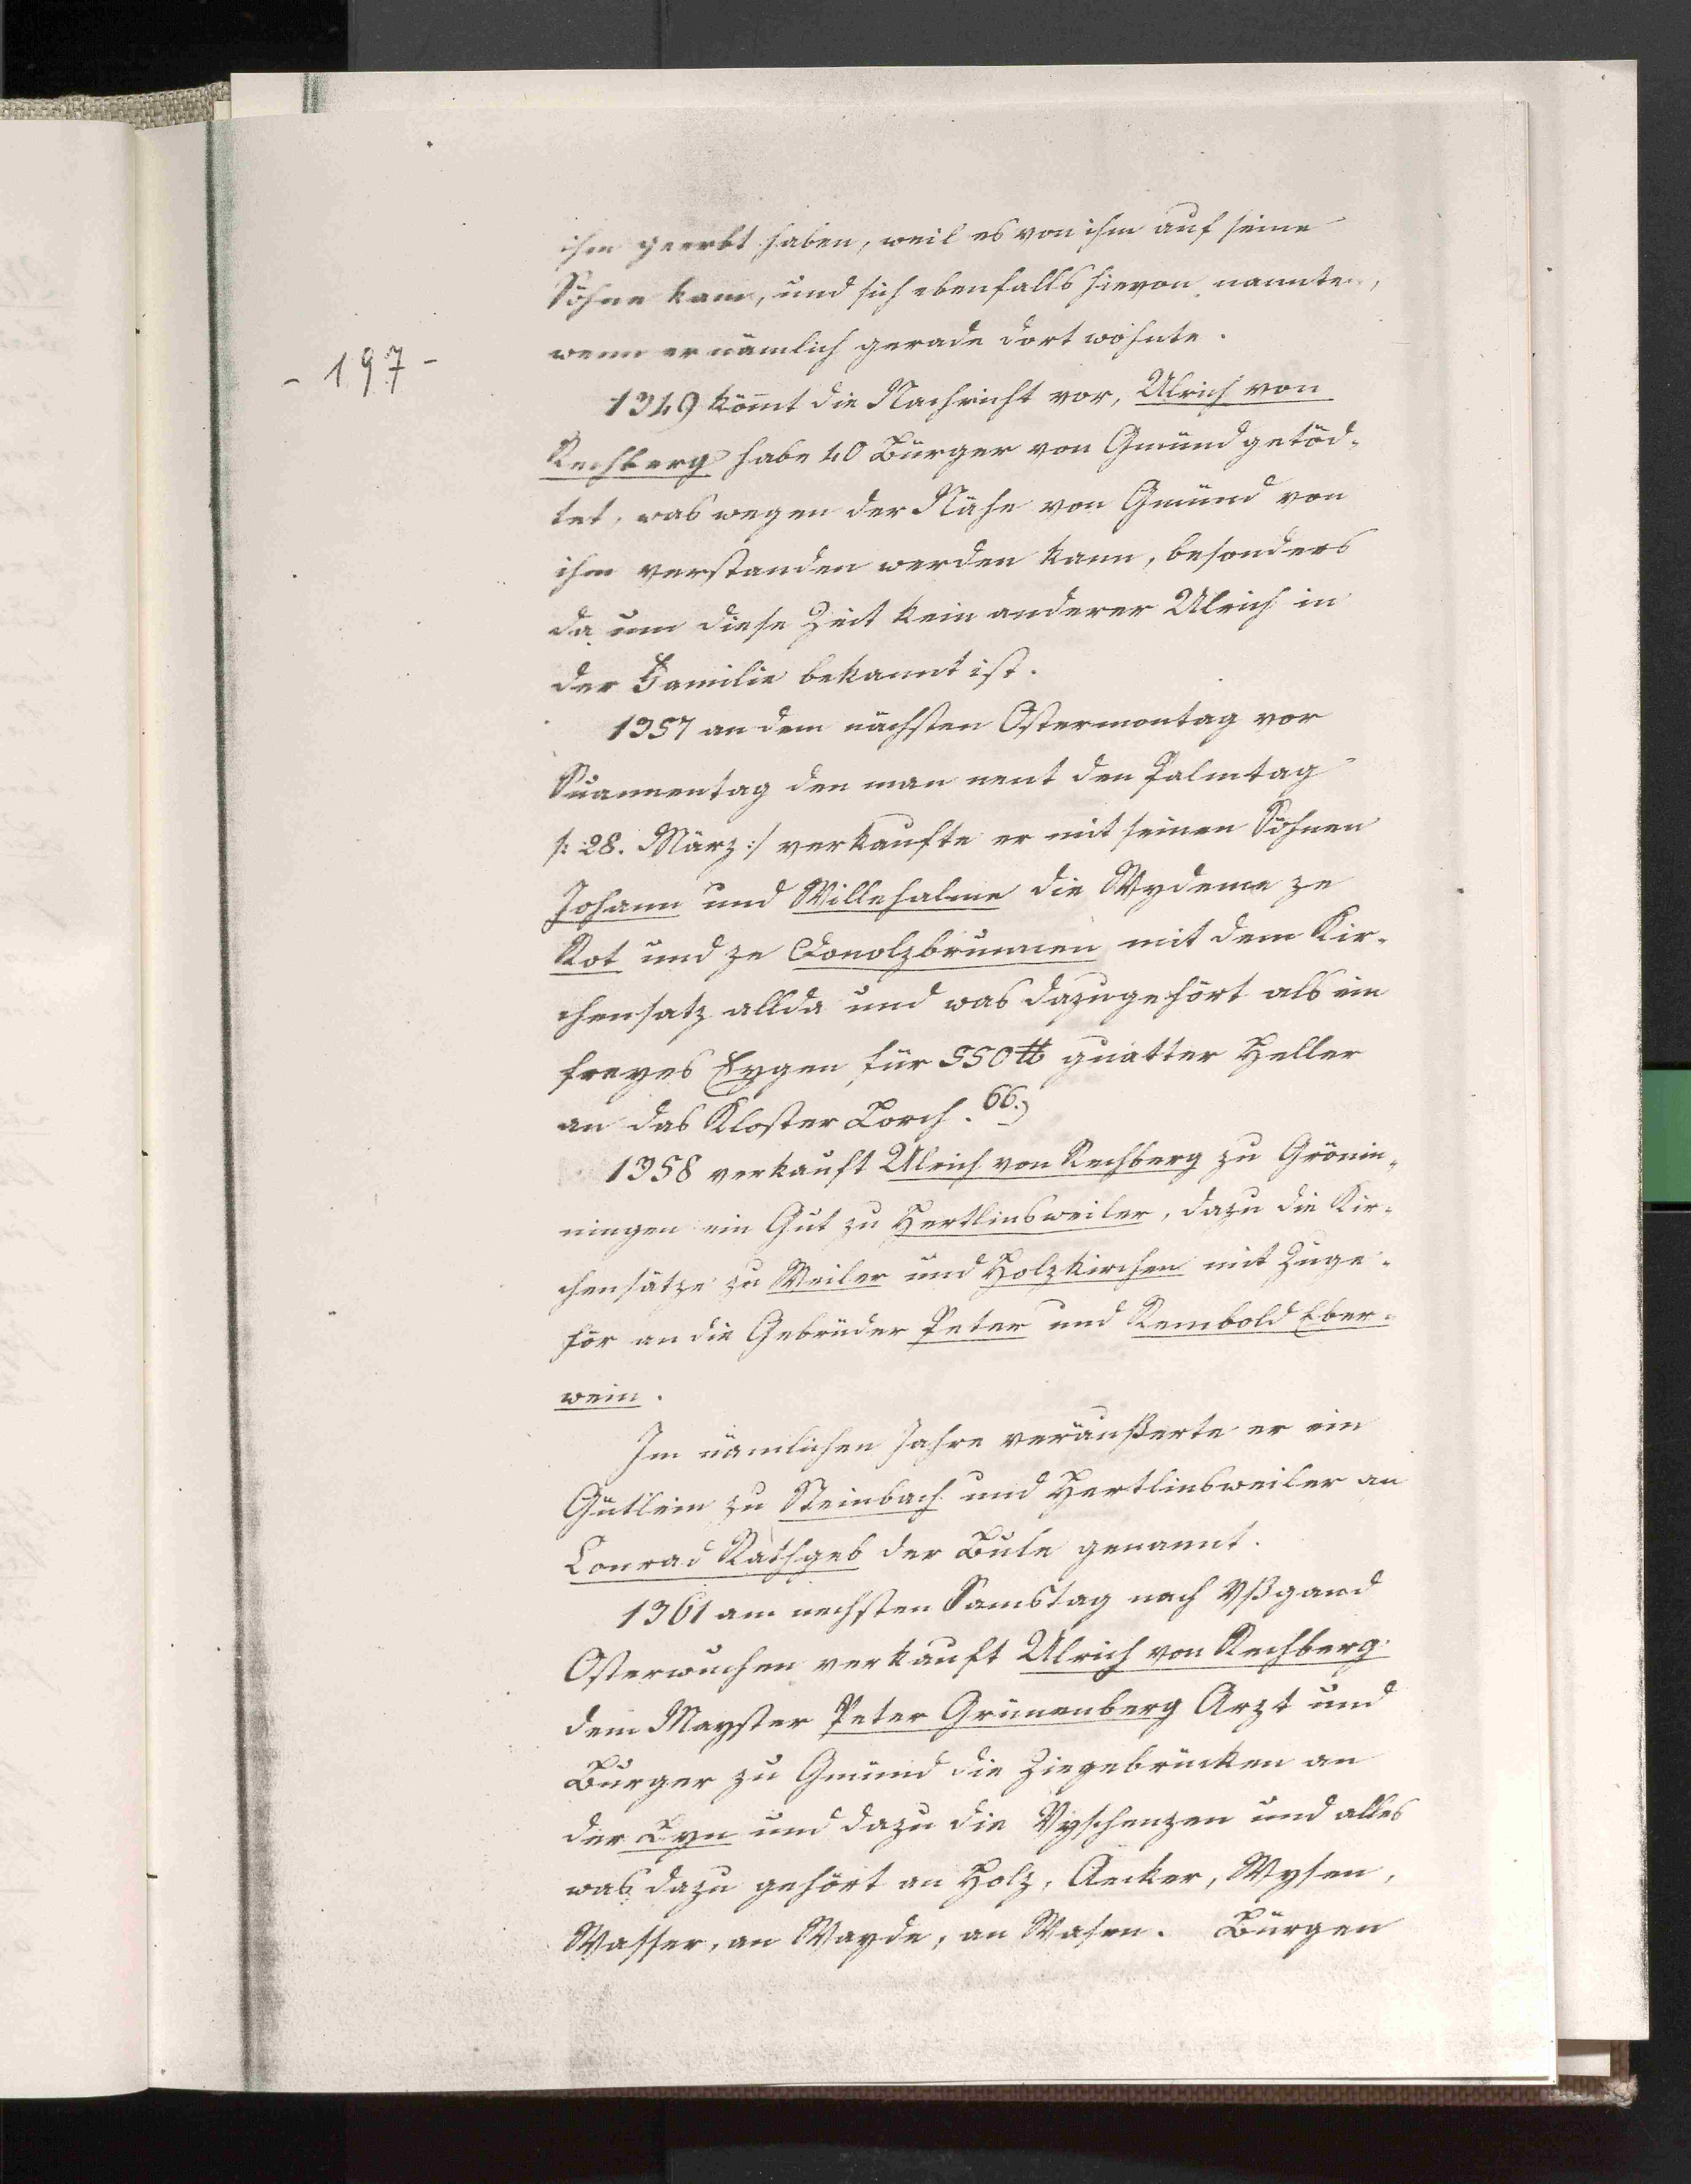 ihm geerbt haben, weil es von ihm auf seine
Söhne kam, und sich ebenfalls hievon nannte,
wenn er nämlich gerade dort wohnte.
- 197 -
1349 kömt die Nachricht vor, Ulrich von
Rechberg habe 40 Bürger von Gmünd getöd-
tet, was wegen der Nähe von Gmünd von
ihm verstanden werden kann, besonders
da um diese Zeit kein anderer Ulrich in
der Familie bekannt ist.
1357 an dem nächsten Ostermontag vor
den man nent den Palmtag
/: 28. März :/ verkaufte er mit seinen Söhnen
Johann und Willehalme die Wydeme ze
Rot und ze Conolzbrunnen mit dem Kir-
chensatz allda und was dazugehört als ein
freyes Eygen für 550 ℔ guatter Heller
an das Kloster Lorch. 66.)
1358 verkauft Ulrich von Rechberg zu Grönin-
ningen ein Gut zu Hertlinsweiler, dazu die Kir-
chensätze zu Weiler und Holzkirchen mit Zuge-
hör an die Gebrüder Peter und Rembold Eber-
wein.
Im nämlichen Jahre veräußerte er ein
Gütlein zu Steinbach und Hertlinsweiler an
Conrad Rathgeb der Bule genannt.
1361 am nechsten Samstag nach Vßgand
Osterwuchen verkauft Ulrich von Rechberg
dem Mayster Peter Grünenberg Arzt und
Burger zu Gmünd die Ziegebrücken an
der Lyn und dazu die Vyschenzen und alles
was dazu gehört an Holz, Aecker, Wysen,
Wasser, an Wayde, an Wasen. Bürgen